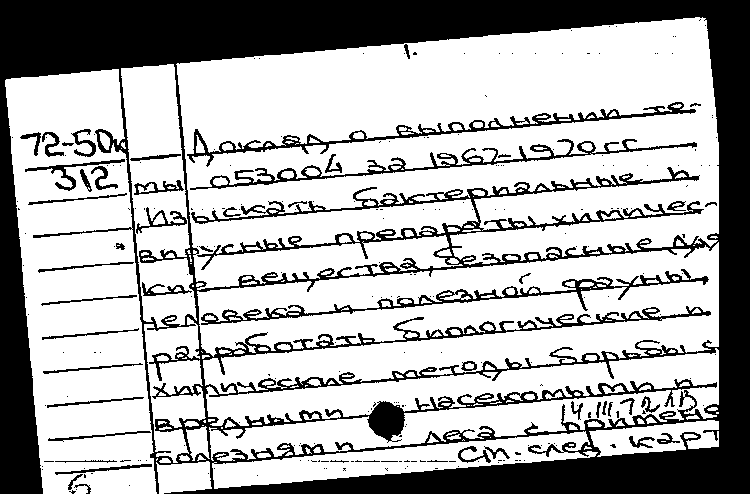 1.
72-50к
312
Доклад о выполнении те-
мы 053004 за 1967-1970гг
„Изыскать бактериальные и
вирусные препараты, химичес-
кие вещества, безопасные для
человека и полезной фауны,
разработать биологические и
химические методы борьбы с
вредными насекомыми и
14.III.72
болезнями леса с примене
См. след. карт
6